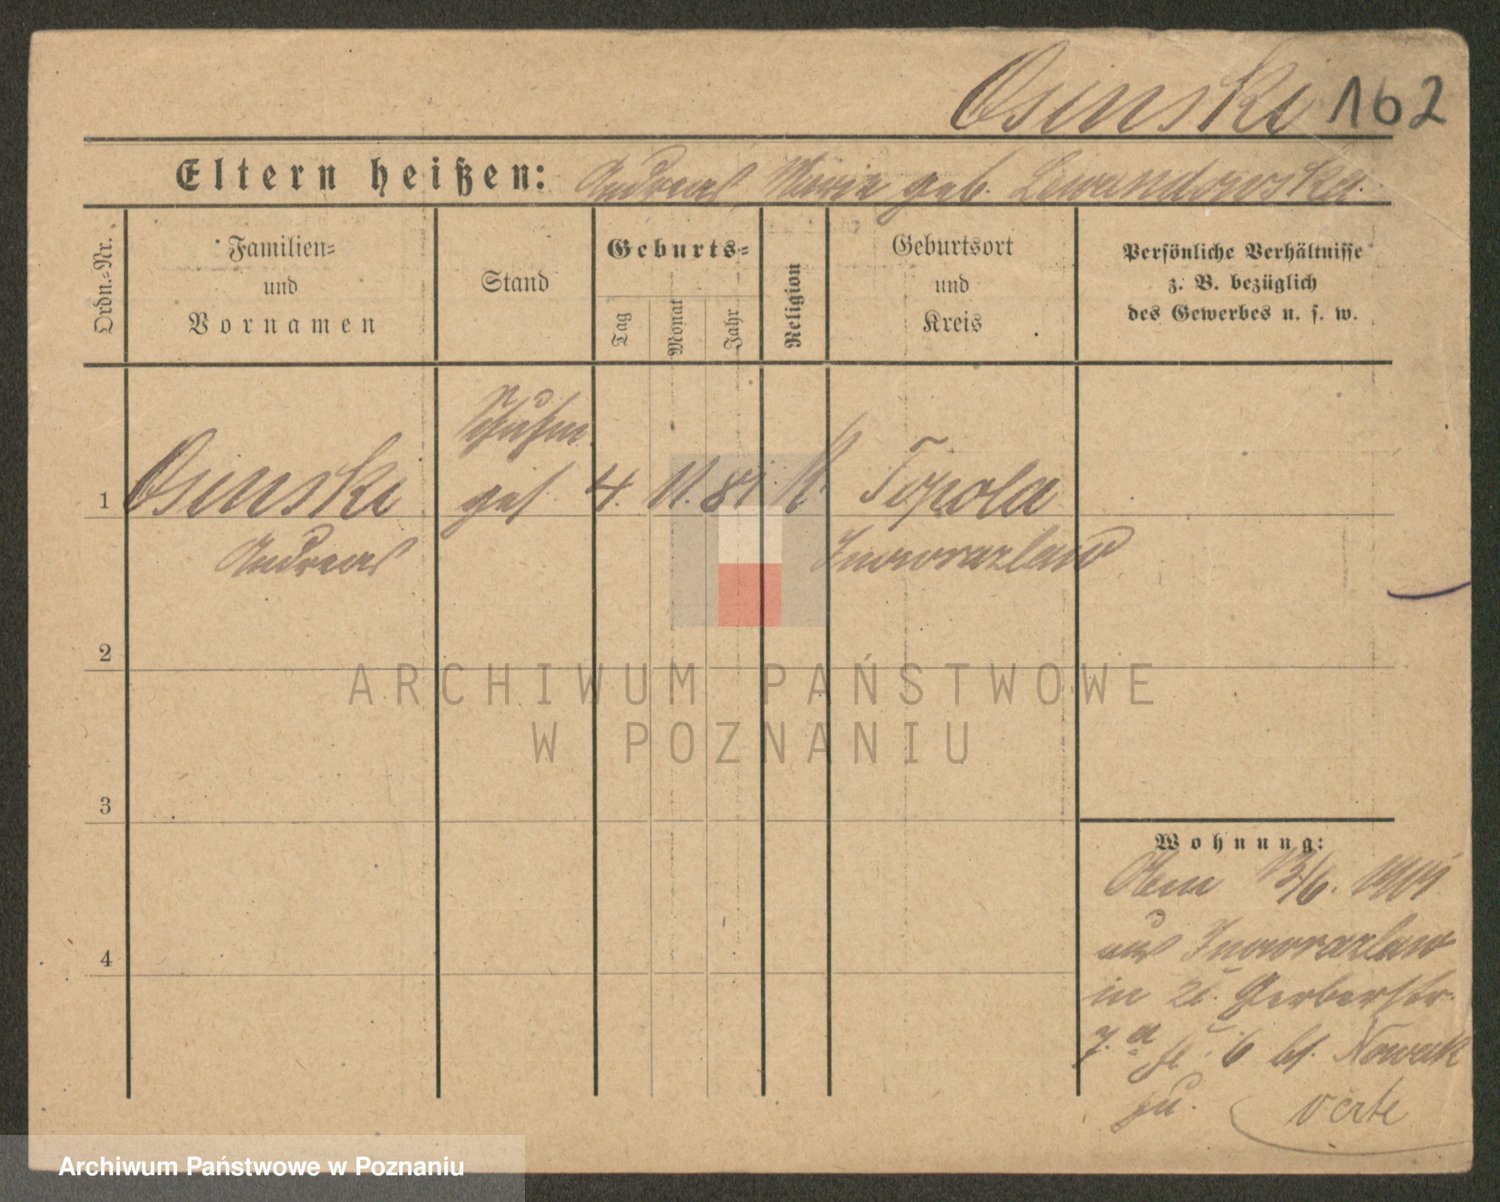 Osinski 162
Eltern heißen: Andreas, Marie geb. Lewandowska.
Ordn.-Nr.
Familien-
und
Vornamen
Stand
Geburts-
Tag
Monat
Jahr
Religion
Geburtsort
und
Kreis
Persönliche Verhältnisse
z. B. bezüglich
des Gewerbes u. s. w.
Schuhm.
1 Osinski ges. 4. 11. 81. K. Topola
Andreas Inowrazlaw
2
ARCHIWUM PAŃSTWOWE
W POZNANIU
3
Wohnung:
13/6.
aus Inowrazlaw
4
in Gerberstr.
7. 6 bs. Nowak
zu. verte
Archiwum Państwowe w Poznaniu